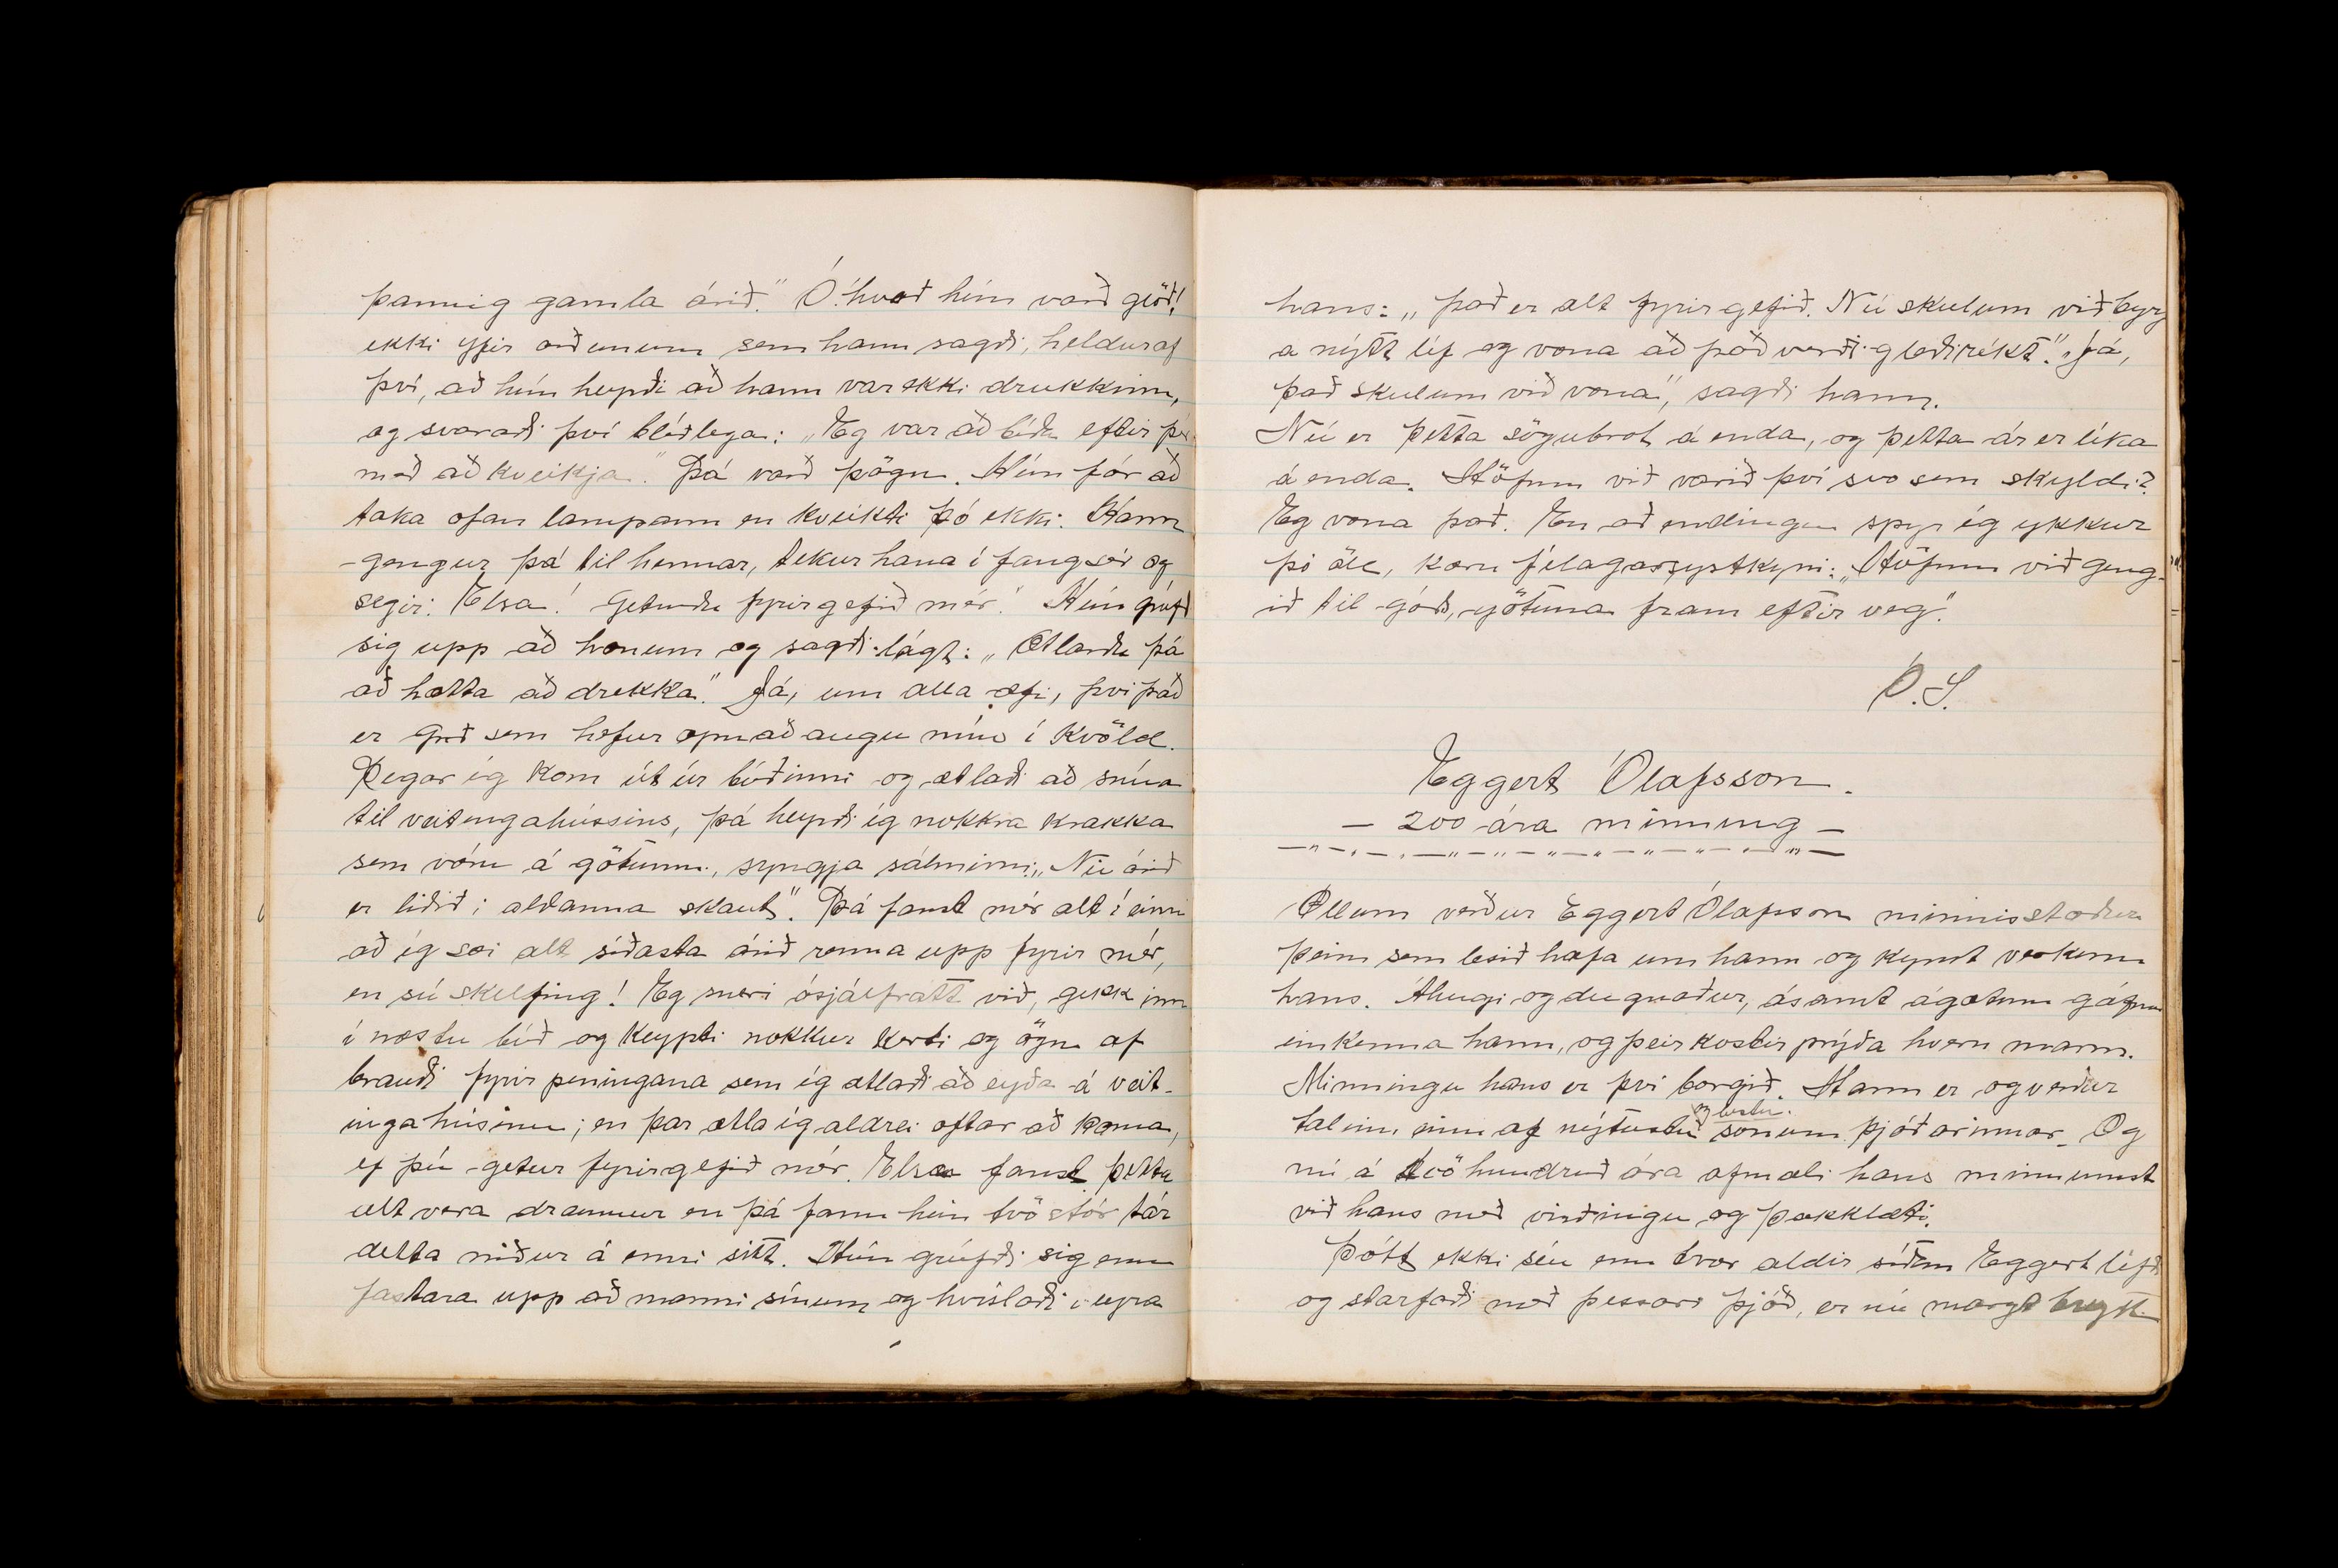 þannig gamla árið." Ó! hvað hún varð glöð!
ekki yfir orðunum sem hann sagði, heldur af
því, að hún heyrði að hann var ekki drukkinn,
og svaraði því blíðlega: „Eg var að bíða eftir þér
með að kveikja." Þá varð þögn. Hún fór að
taka ofan lampann en kveikti þó ekki. Hann
gengur þá til hennar, tekur hana í fang sér og
segir: Elsa! Geturðu fyrirgefið mér! Hún grúfði
sig upp að honum og sagði lágt: „Ætlarðu þá
að hætta að drekka". Já, um alla æfi, því það
er Guð sem hefur opnað augu mín í kvöld.
Þegar ég kom út úr búðinni og ætlaði að snúa
til veitingahússins, þá heyrði ég nokkra krakka
sem vóru á götunni, syngja sálminn: „Nú árið
er liðið í aldanna skaut". Þá fanst mér alt í einu
að ég sæi alt síðasta árið renna upp fyrir mér,
en sú skelfing! Eg sneri ósjálfrátt við, gekk inn
í næstu búð og keypti nokkur kerti og ögn af
brauði fyrir peningana sem ég ætlaði að eyða á veit-
ingahúsinu; en þar ætla ég aldrei oftar að koma,
ef þú getur fyrirgefið mér. Elsa fanst þetta
alt vera draumur en þá fann hún tvö stór tár
detta niður á enni sitt. Hún grúfði sig enn
fastara upp að manni sínum og hvíslaði í eyra
hans: „það er alt fyrirgefið. Nú skulum við byrj
a nýtt líf og vona að það verði gleðiríkt". „Já,
það skulum við vona", sagði hann.
Nú er þetta sögubrot á enda, og þetta ár er líka
á enda. Höfum við varið því svo sem skyldi?
Eg vona það. En að endingu spyr ég ykkur
þó öll, kæru félagssystkyni: „Höfum við geng-
ið til góðs, götuna fram eftir veg".
Ó.S.
Eggert Ólafsson.
— 200 ára minning —
Öllum verður Eggert Ólafsson minnisstæður
þeim sem lesið hafa um hann og kynst verkum
hans. Áhugi og dugnaður, ásamt ágætum gáfum
einkenna hann, og þeir kostir prýða hvern mann.
Minningu hans er því borgið. Hann er og verður
talinn einn af nýtustu og bestu sonum þjóðarinnar. Og
nú á tvö hundruð ára afmæli hans minnumst
við hans með virðingu og þakklæti.
Þótt ekki séu enn tvær aldir síðan Eggert lifði
og starfaði með þessari þjóð, er nú margt breytt